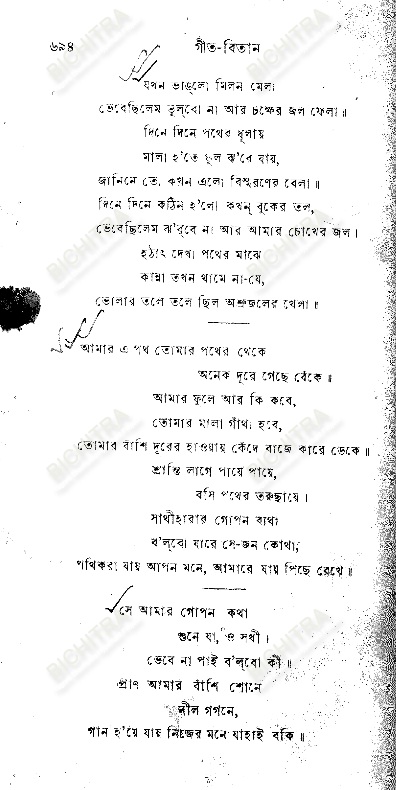 ৬৯৪
গীত-বিতান
যখন ভাঙ্‌লো মিলন মেলা
ভেবেছিলেম ভুল্‌বো না আর চক্ষের জল ফেলা॥
দিনে দিনে পথের ধূলায়
মালা হ'তে ফুল ঝ'রে যায়,
জানিনে তো কখন এলো বিস্মরণের বেলা॥
দিনে দিনে কঠিন হ'লো কখন্ বুকের তল,
ভেবেছিলেম ঝ'র্‌বে না আর আমার চোখের জল।
হঠাৎ দেখা পথের মাঝে
কান্না তখন থামে না-যে,
ভোলার তলে তলে ছিল অশ্রুজলের খেলা॥
আমার এ পথ তোমার পথের থেকে
অনেক দূরে গেছে বেঁকে॥
আমার ফুলে আর কি কবে,
তোমার মালা গাঁথা হবে,
তোমার বাঁশি দূরের হাওয়ায় কেঁদে বাজে কারে ডেকে॥
শ্রান্তি লাগে পায়ে পায়ে,
বসি পথের তরুছায়ে।
সাথীহারার গোপন ব্যথা
ব'ল্‌বো যারে সে-জন কোথা,
পথিকরা যায় আপন মনে, আমারে যায় পিছে রেখে॥
সে আমার গোপন কথা
শুনে যা, ও সখী।
ভেবে না পাই ব'ল্‌বো কী॥
প্রাণ আমার বাঁশি শোনে
নীল গগনে,
গান হ'য়ে যায় নিজের মনে যাহাই বকি॥
BICHITRA